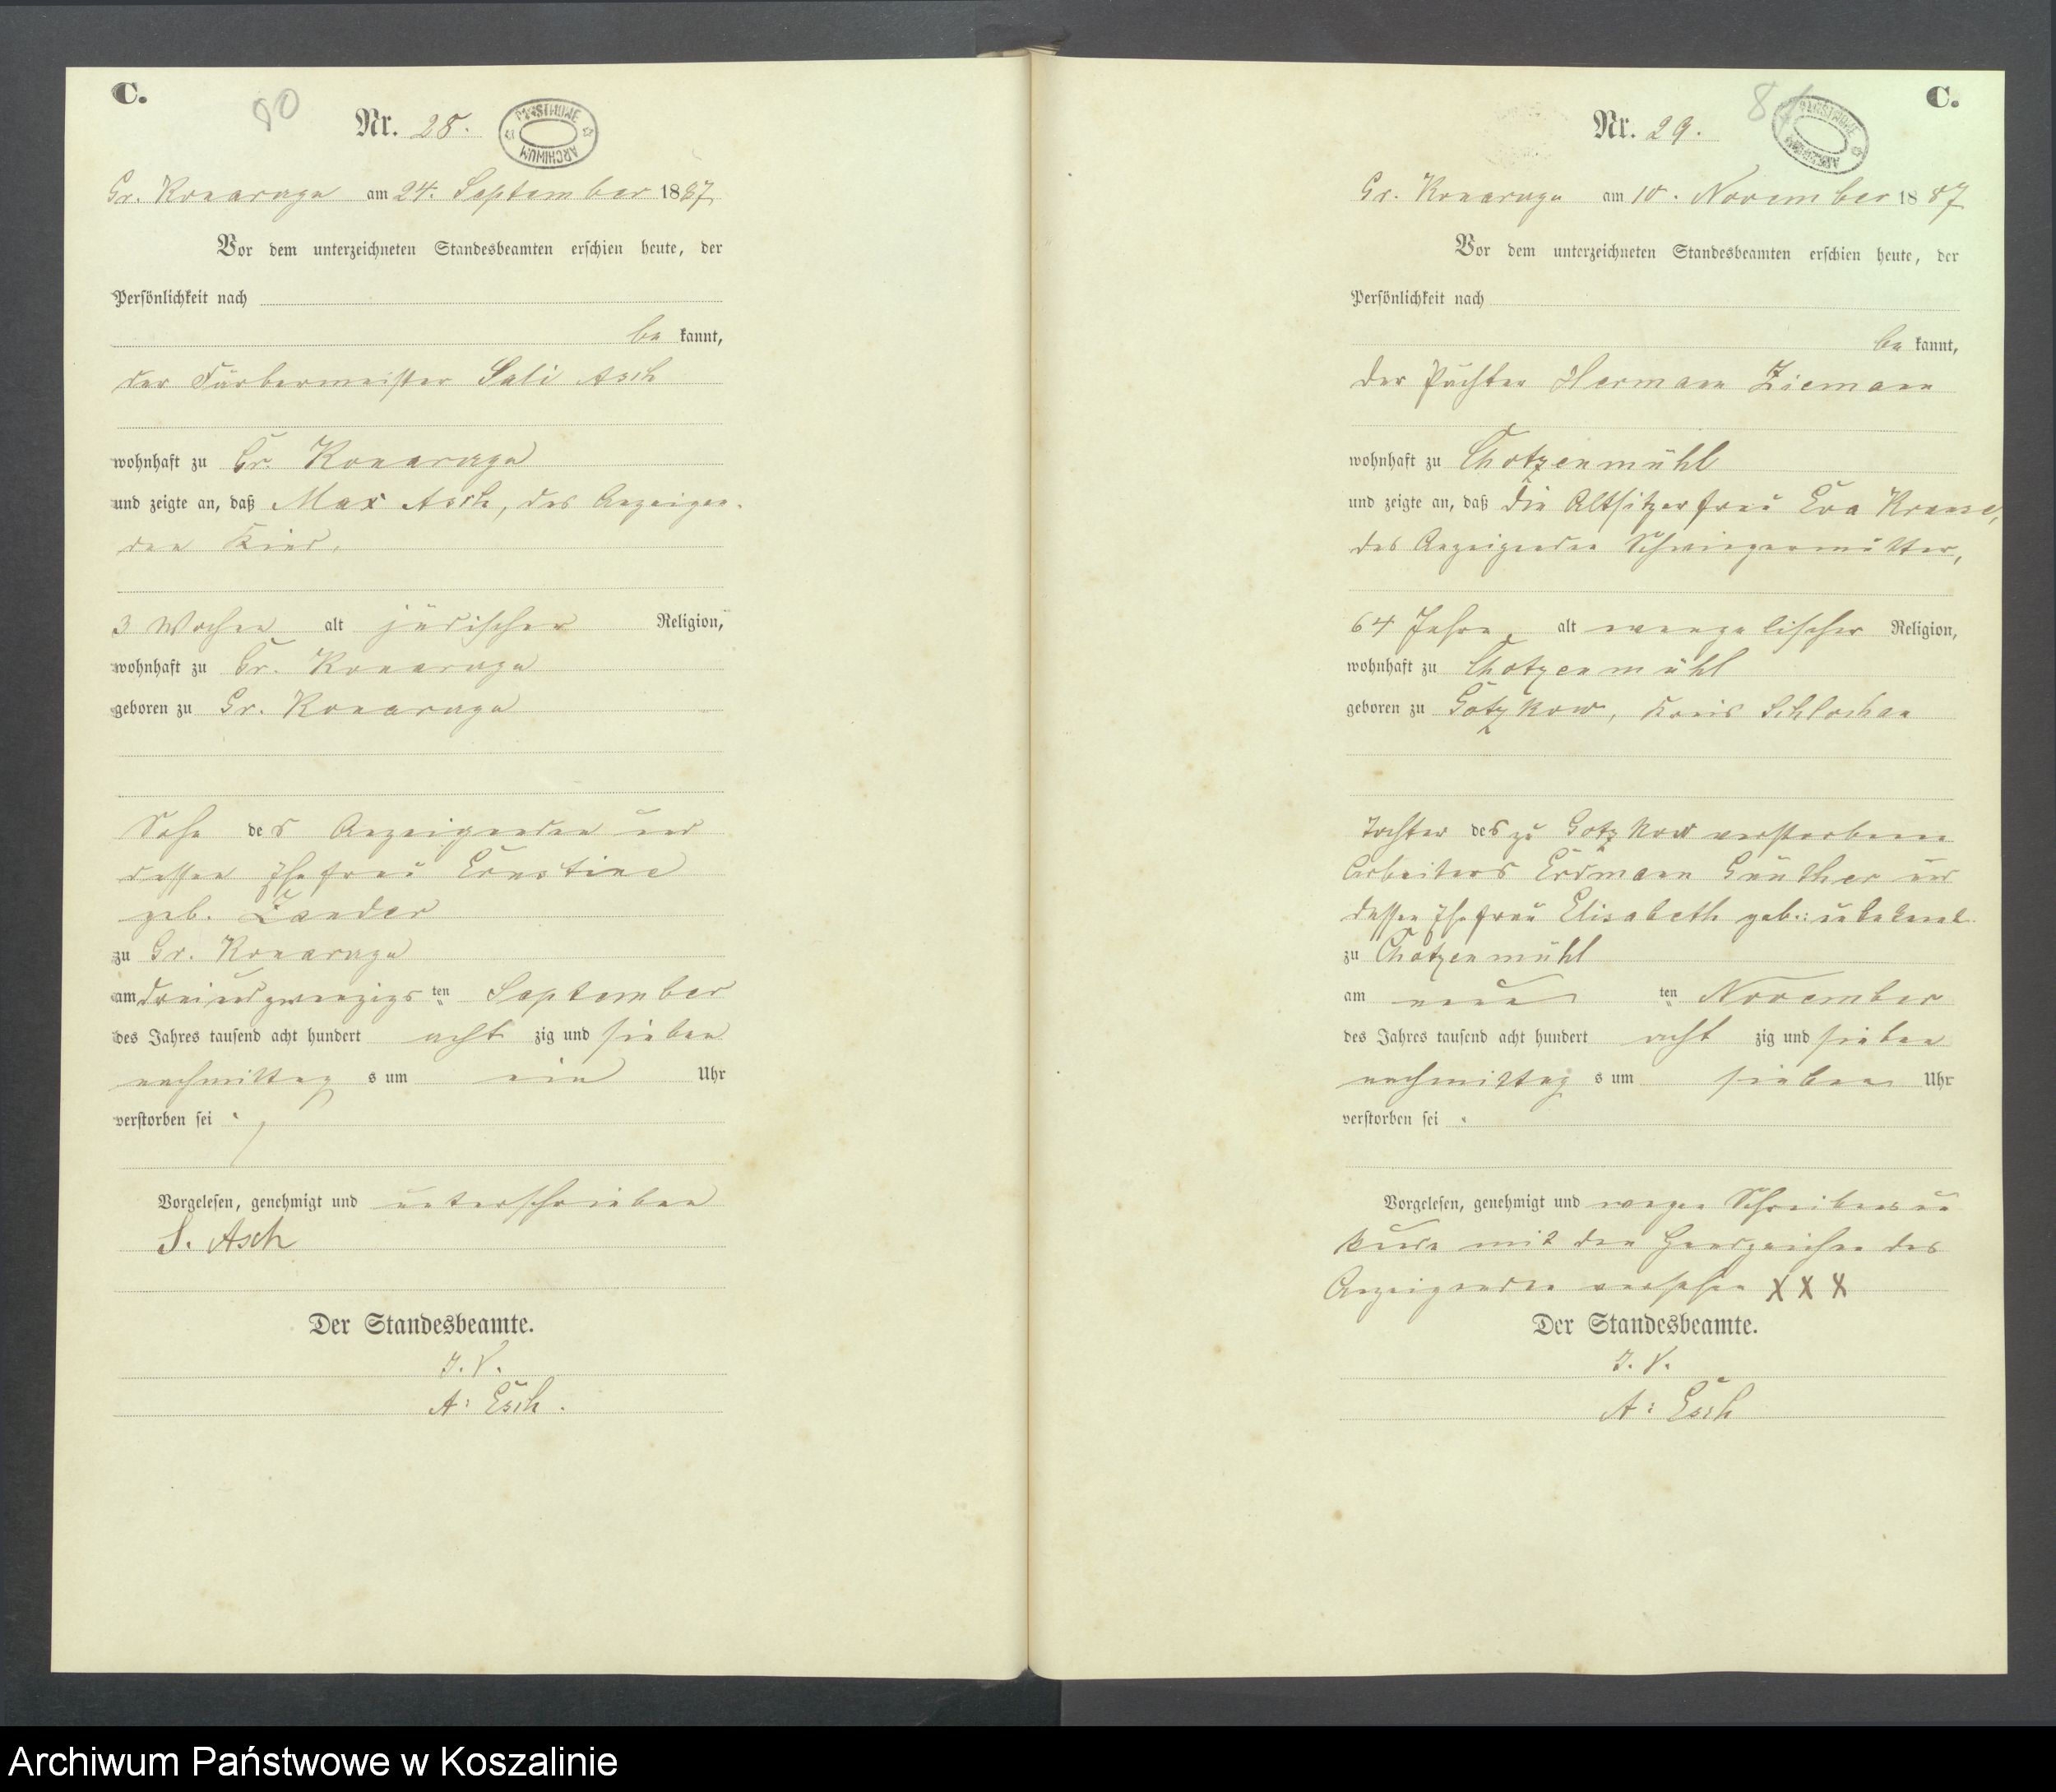 C.
80
Nr. 28.
PAŃSTWOWE ARCHIWUM
Gr. Konarzyn am 24. September 1887
Vor dem unterzeichneten Standesbeamten erschien heute, der
Persönlichkeit nach
be kannt,
der Färbermeister Sali Asch
wohnhaft zu Gr. Konarzyn
und zeigte an, daß Max Asch, des Anzeigen-
den Kind,
3 Wochen alt jüdischer Religion,
wohnhaft zu Gr. Konarzyn
geboren zu Gr. Konarzyn
Sohn des Anzeigenden und
dessen Ehefrau Ernstine
geb. Zander
zu Gr. Konarzyn
am dreiundzwanzigs ten September
des Jahres tausend acht hundert acht zig und sieben
nachmittag s um ein Uhr
verstorben sei.
Vorgelesen, genehmigt und unterschrieben
S. Asch
Der Standesbeamte.
J. V.
A: Esch.
C.
Nr. 29.
PAŃSTWOWE ARCHIWUM
Gr. Konarzyn am 10. November 1887
Vor dem unterzeichneten Standesbeamten erschien heute, der
Persönlichkeit nach
be kannt,
der Pächter Hermann Ziemann
wohnhaft zu Chotzenmühl
und zeigte an, daß die Altsitzerfrau Eva Krause,
des Anzeigenden Schwiegermutter,
64 Jahre alt evangelischer Religion,
wohnhaft zu Chotzenmühl
geboren zu Gotzkow, Kreis Schlochau
Tochter des zu Gotzkow verstorbenen
Arbeiters Erdmann Günther und
dessen Ehefrau Elisabeth geb: unbekannt
zu Chotzenmühl
am neun ten November
des Jahres tausend acht hundert acht zig und sieben
nachmittag s um sieben Uhr
verstorben sei.
Vorgelesen, genehmigt und wegen Schreibensun
kunde mit den Handzeichen des
Anzeigenden versehen X X X
Der Standesbeamte.
J. V.
A: Esch
Archiwum Państwowe w Koszalinie